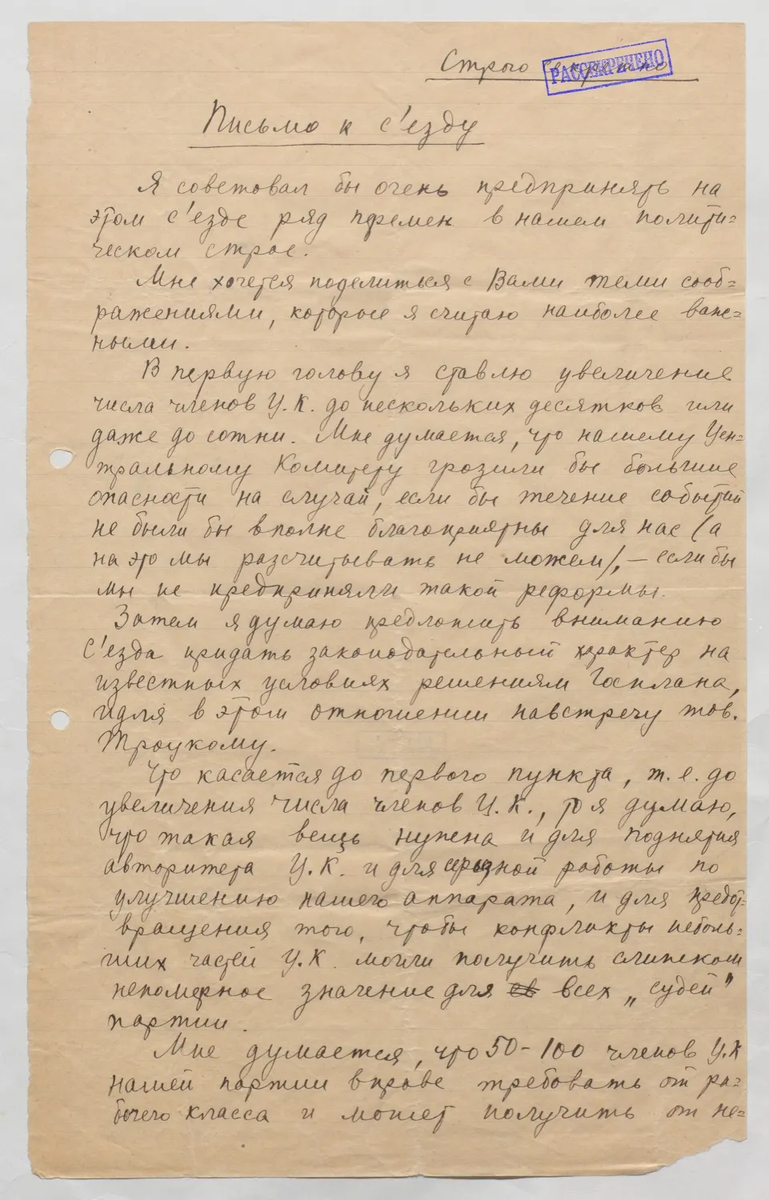 Строго секретно
РАССЕКРЕЧЕНО
Письмо к с'езду
Я советовал бы очень предпринять на
этом с'езде ряд перемен в нашем полити=
ческом строе.
Мне хочется поделиться с Вами теми сооб=
ражениями, которые я считаю наиболее важ=
ными.
В первую голову я ставлю увеличение
числа членов Ц.К. до нескольких десятков или
даже до сотни. Мне думается, что нашему Цен=
тральному Комитету грозили бы большие
опасности на случай, если бы течение событий
не были бы вполне благоприятны для нас (а
на это мы рассчитывать не можем), – если бы
мы не предприняли такой реформы.
Затем я думаю предложить вниманию
с'езда придать законодательный характер на
известных условиях решениям Госплана,
идя в этом отношении навстречу тов.
Троцкому.
Что касается до первого пункта, т.е. до
увеличения числа членов Ц.К., то я думаю,
что такая вещь нужна и для поднятия
авторитета Ц.К. и для серьезной работы по
улучшению нашего аппарата, и для предот=
вращения того, чтобы конфликты неболь=
ших частей Ц.К. могли получить слишком
непомерное значение для всех „судеб"
партии.
Мне думается, что 50–100 членов Ц.К
нашей партии вправе требовать от ра=
бочего класса и может получить от не=